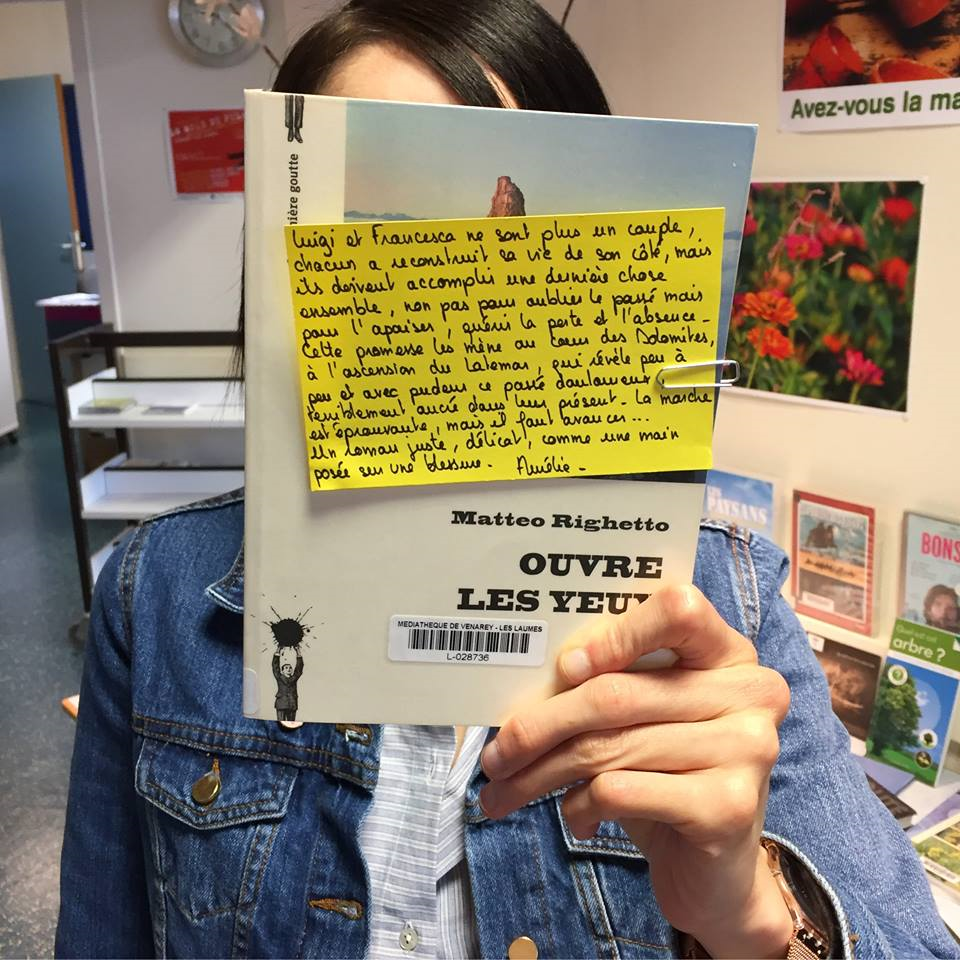 Avez-vous la ma
nière goutte
Luigi et Francesca ne sont plus un couple,
chacun a reconstruit sa vie de son côté, mais
ils doivent accomplir une dernière chose
ensemble, non pas pour oublier le passé mais
pour l'apaiser, guérir la perte et l'absence -
Cette promesse les mène au coeur des Dolomites,
à l'ascension du Latemar, qui révèle peu à
peu et avec pudeur ce passé douloureux
terriblement ancré dans leur présent - La marche
est éprouvante, mais il faut avancer...
Un roman juste, délicat, comme une main
posée sur une blessure - Amélie -
Matteo Righetto
OUVRE
LES YEUX
MEDIATHEQUE DE VENAREY - LES LAUMES
L-028736
PAYSANS
BONS
Qu'est-ce qu'un
arbre ?